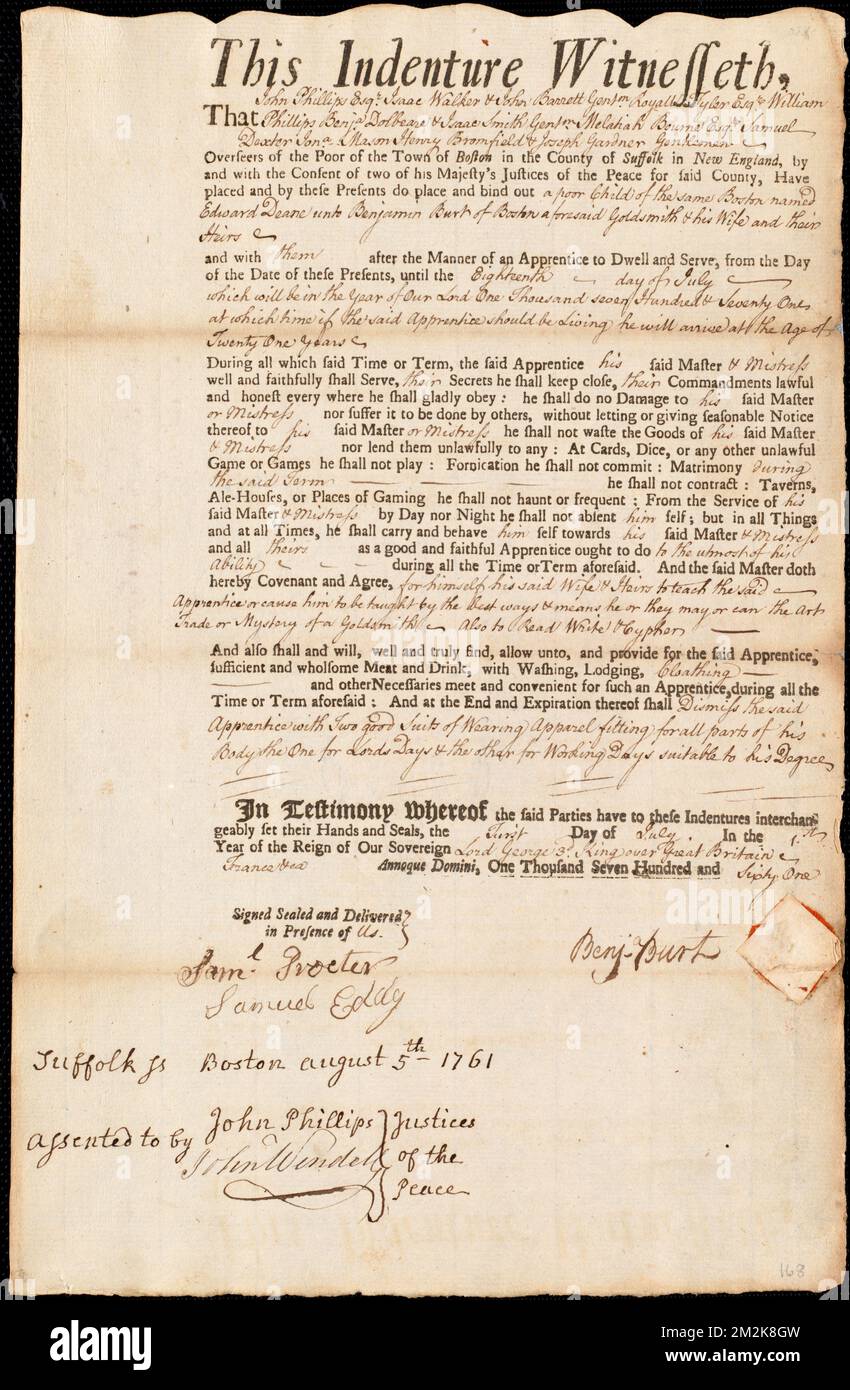 This Indenture Witnesseth,
John Phillips Esqr. Isaac Walker & John Barrett Gentm Royall Tyler Esqr William
That Phillips Benja. Dolbeare & Isaac Smith Gentm. Melatiah Bourne Esqr. Samuel
Dexter Jona. Mason Henry Bromfield & Joseph Gardner Gentlemen
Overseers of the Poor of the Town of Boston in the County of Suffolk in New England, by
and with the Consent of two of his Majesty's Justices of the Peace for said County, Have
placed and by these Presents do place and bind out a poor Child of the same Boston named
Edward Deane unto Benjamin Burt of Boston aforesaid Goldsmith & his Wife and their
Heirs
and with them after the Manner of an Apprentice to Dwell and Serve, from the Day
of the Date of these Presents, until the Eighteenth day of July
which will be in the Year of Our Lord One Thousand seven Hundred & Seventy One
at which time if the said Apprentice should be Living he will arrive at the Age of
Twenty One Years
During all which said Time or Term, the said Apprentice his said Master & Mistress
well and faithfully shall Serve, their Secrets he shall keep close, their Commandments lawful
and honest every where he shall gladly obey: he shall do no Damage to his said Master
or Mistress nor suffer it to be done by others, without letting or giving seasonable Notice
thereof to his said Master or Mistress he shall not waste the Goods of his said Master
& Mistress nor lend them unlawfully to any: At Cards, Dice, or any other unlawful
Game or Games he shall not play: Fornication he shall not commit: Matrimony during
the said Term he shall not contract: Taverns,
Ale-Houses, or Places of Gaming he shall not haunt or frequent: From the Service of his
said Master & Mistress by Day nor Night he shall not absent him self; but in all Things
and at all Times, he shall carry and behave him self towards his said Master & Mistress
and all theirs as a good and faithful Apprentice ought to do to the utmost of his
Ability during all the Time or Term aforesaid. And the said Master doth
hereby Covenant and Agree, for himself, his said Wife & Heirs to teach the said
Apprentice or cause him to be taught by the best ways & means he or they may or can the Art
Trade or Mystery of a Goldsmith Also to Read Write & Cypher
And also shall and will, well and truly find, allow unto, and provide for the said Apprentice,
sufficient and wholsome Meat and Drink, with Washing, Lodging, Cloathing
and other Necessaries meet and convenient for such an Apprentice, during all the
Time or Term aforesaid: And at the End and Expiration thereof shall Dismiss the said
Apprentice with Two good Suits of Wearing Apparel fitting for all parts of his
Body the One for Lords Days & the other for Working Days suitable to his Degree
In Testimony whereof the said Parties have to these Indentures interchan-
geably set their Hands and Seals, the First Day of July. In the 1st
Year of the Reign of Our Sovereign Lord George 3d. King over Great Britain
France &ca Annoque Domini, One Thousand Seven Hundred and Sixty One
Signed Sealed and Delivered
in Presence of Us.
Benja. Burt
Saml. Procter
Samuel Eddy
Suffolk ss Boston august 5th 1761
assented to by John Phillips Justices
John Wendell of the
Peace
168
alamy
Image ID: 2M2K8GW
www.alamy.com